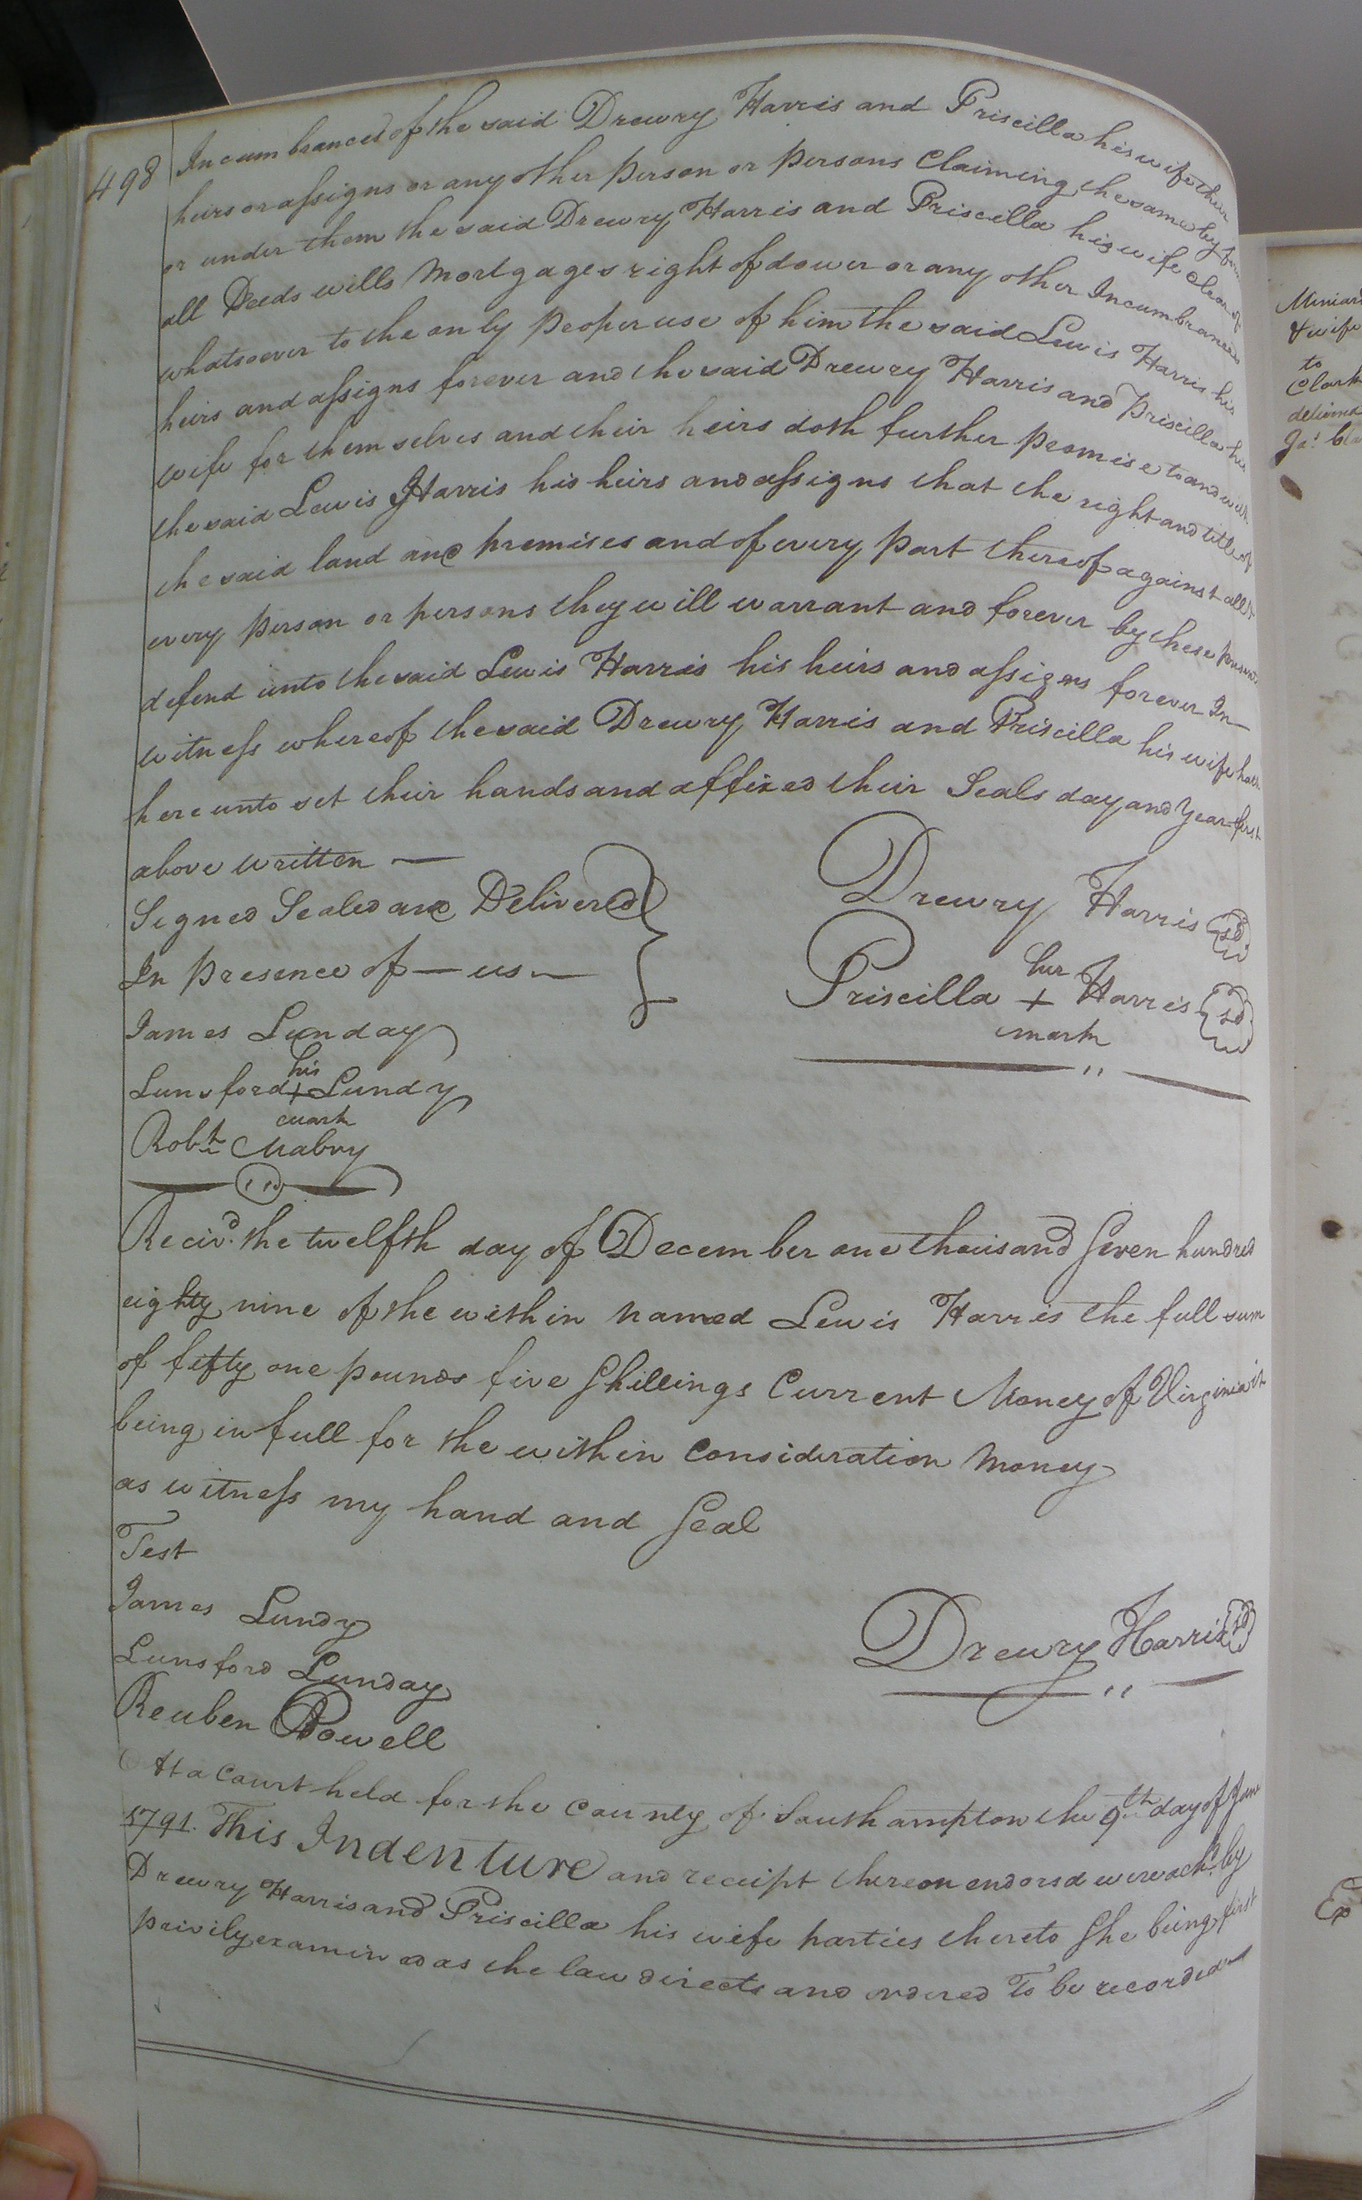 498
Incumbrances of the said Drewry Harris and Priscilla his wife their
heirs or assigns or any other Person or Persons Claiming the same by from
or under them the said Drewry Harris and Priscilla his wife clear of
all Deeds wills Mortgages right of dower or any other Incumbrances
whatsoever to the only Proper use of him the said Lewis Harris his
heirs and assigns forever and the said Drewry Harris and Priscilla his
wife for themselves and their heirs doth further Promise to and with
the said Lewis Harris his heirs and assigns that the right and title of
the said land and premises and of every Part thereof against all &
every Person or persons they will warrant and forever by these presents
defend unto the said Lewis Harris his heirs and assigns forever In
witness whereof the said Drewry Harris and Priscilla his wife hath
here unto set their hands and affixed their Seals day and Year first
above written —
Signed Sealed and Delivered
In Presence of — us —
James Lunday
his
Lunsford + Lundy
mark
Robt. Mabry
Drewry Harris Sd
her
Priscilla + Harris Sd
mark
Recivd. the twelfth day of December one thousand Seven hundred
eighty nine of the within named Lewis Harris the full sum
of fifty one pounds five Shillings Current Money of Virginia it
being in full for the within Consideration Money
as witness my hand and Seal
Test
James Lundy
Lunsford Lunday
Reuben Powell
Drewry Harris Sd
At a Court held for the County of Southampton the 9th day of June
1791. This Indenture and receipt thereon endorsd were ackd. by
Drewry Harris and Priscilla his wife parties thereto She being first
privily examined as the law directs and ordered To be recorded
Miniard
& wife
to
Clark